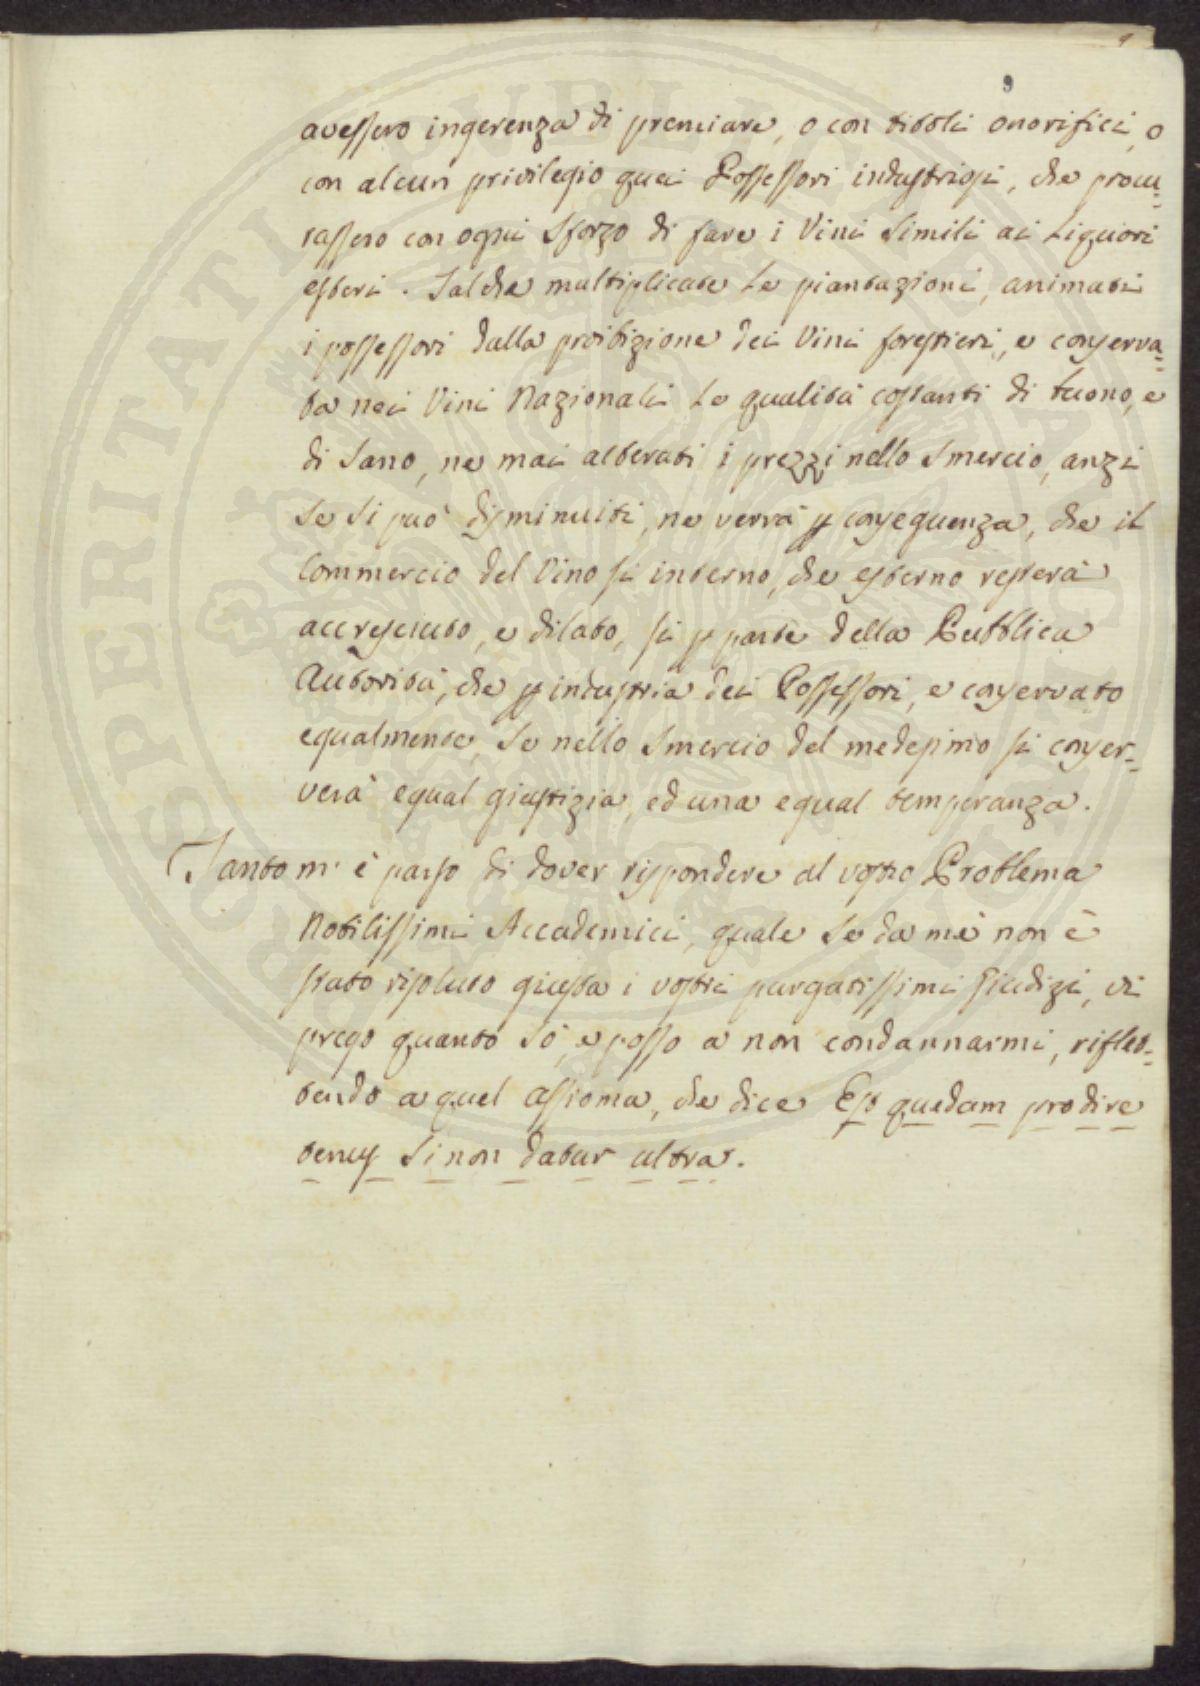 9
9
avessero ingerenza di premiare, o con titoli onorifici, o
con alcun privilegio quei Possessori industriosi, che procu=
rassero con ogni Sforzo di fare i Vini Simili ai Liquori
esteri. Talche multiplicate Le piantazioni, animati
i possessori dalla proibizione dei Vini forestieri, e conserva=
ta nei Vini Nazionali Le qualità costanti di buono, e
di Sano, ne mai alterati i prezzi nello Smercio, anzi
Se Si può disminuiti, ne verrà p conseguenza, che il
Commercio del Vino si interno, che esterno resterà
accresciuto, e dilato, si p parte della Pubblica
Autorità, che p industria dei Possessori, e conservato
equalmente, Se nello Smercio del medesimo si conser=
verà equal giustizia, ed una equal temperanza.
Tanto m' è parso di dover rispondere al vostro Problema
Nobilissimi Accademici, quale Se da mè non è
stato risoluto giusta i vostri purgatissimi Giudizi, vi
prego quanto Sò, e posso a non condannarmi, riflet=
tendo a quel assioma, che dice Est quedam prodire
tenus Si non datur ultra.
PROSPERITATI PVBLICAE AVGENDAE